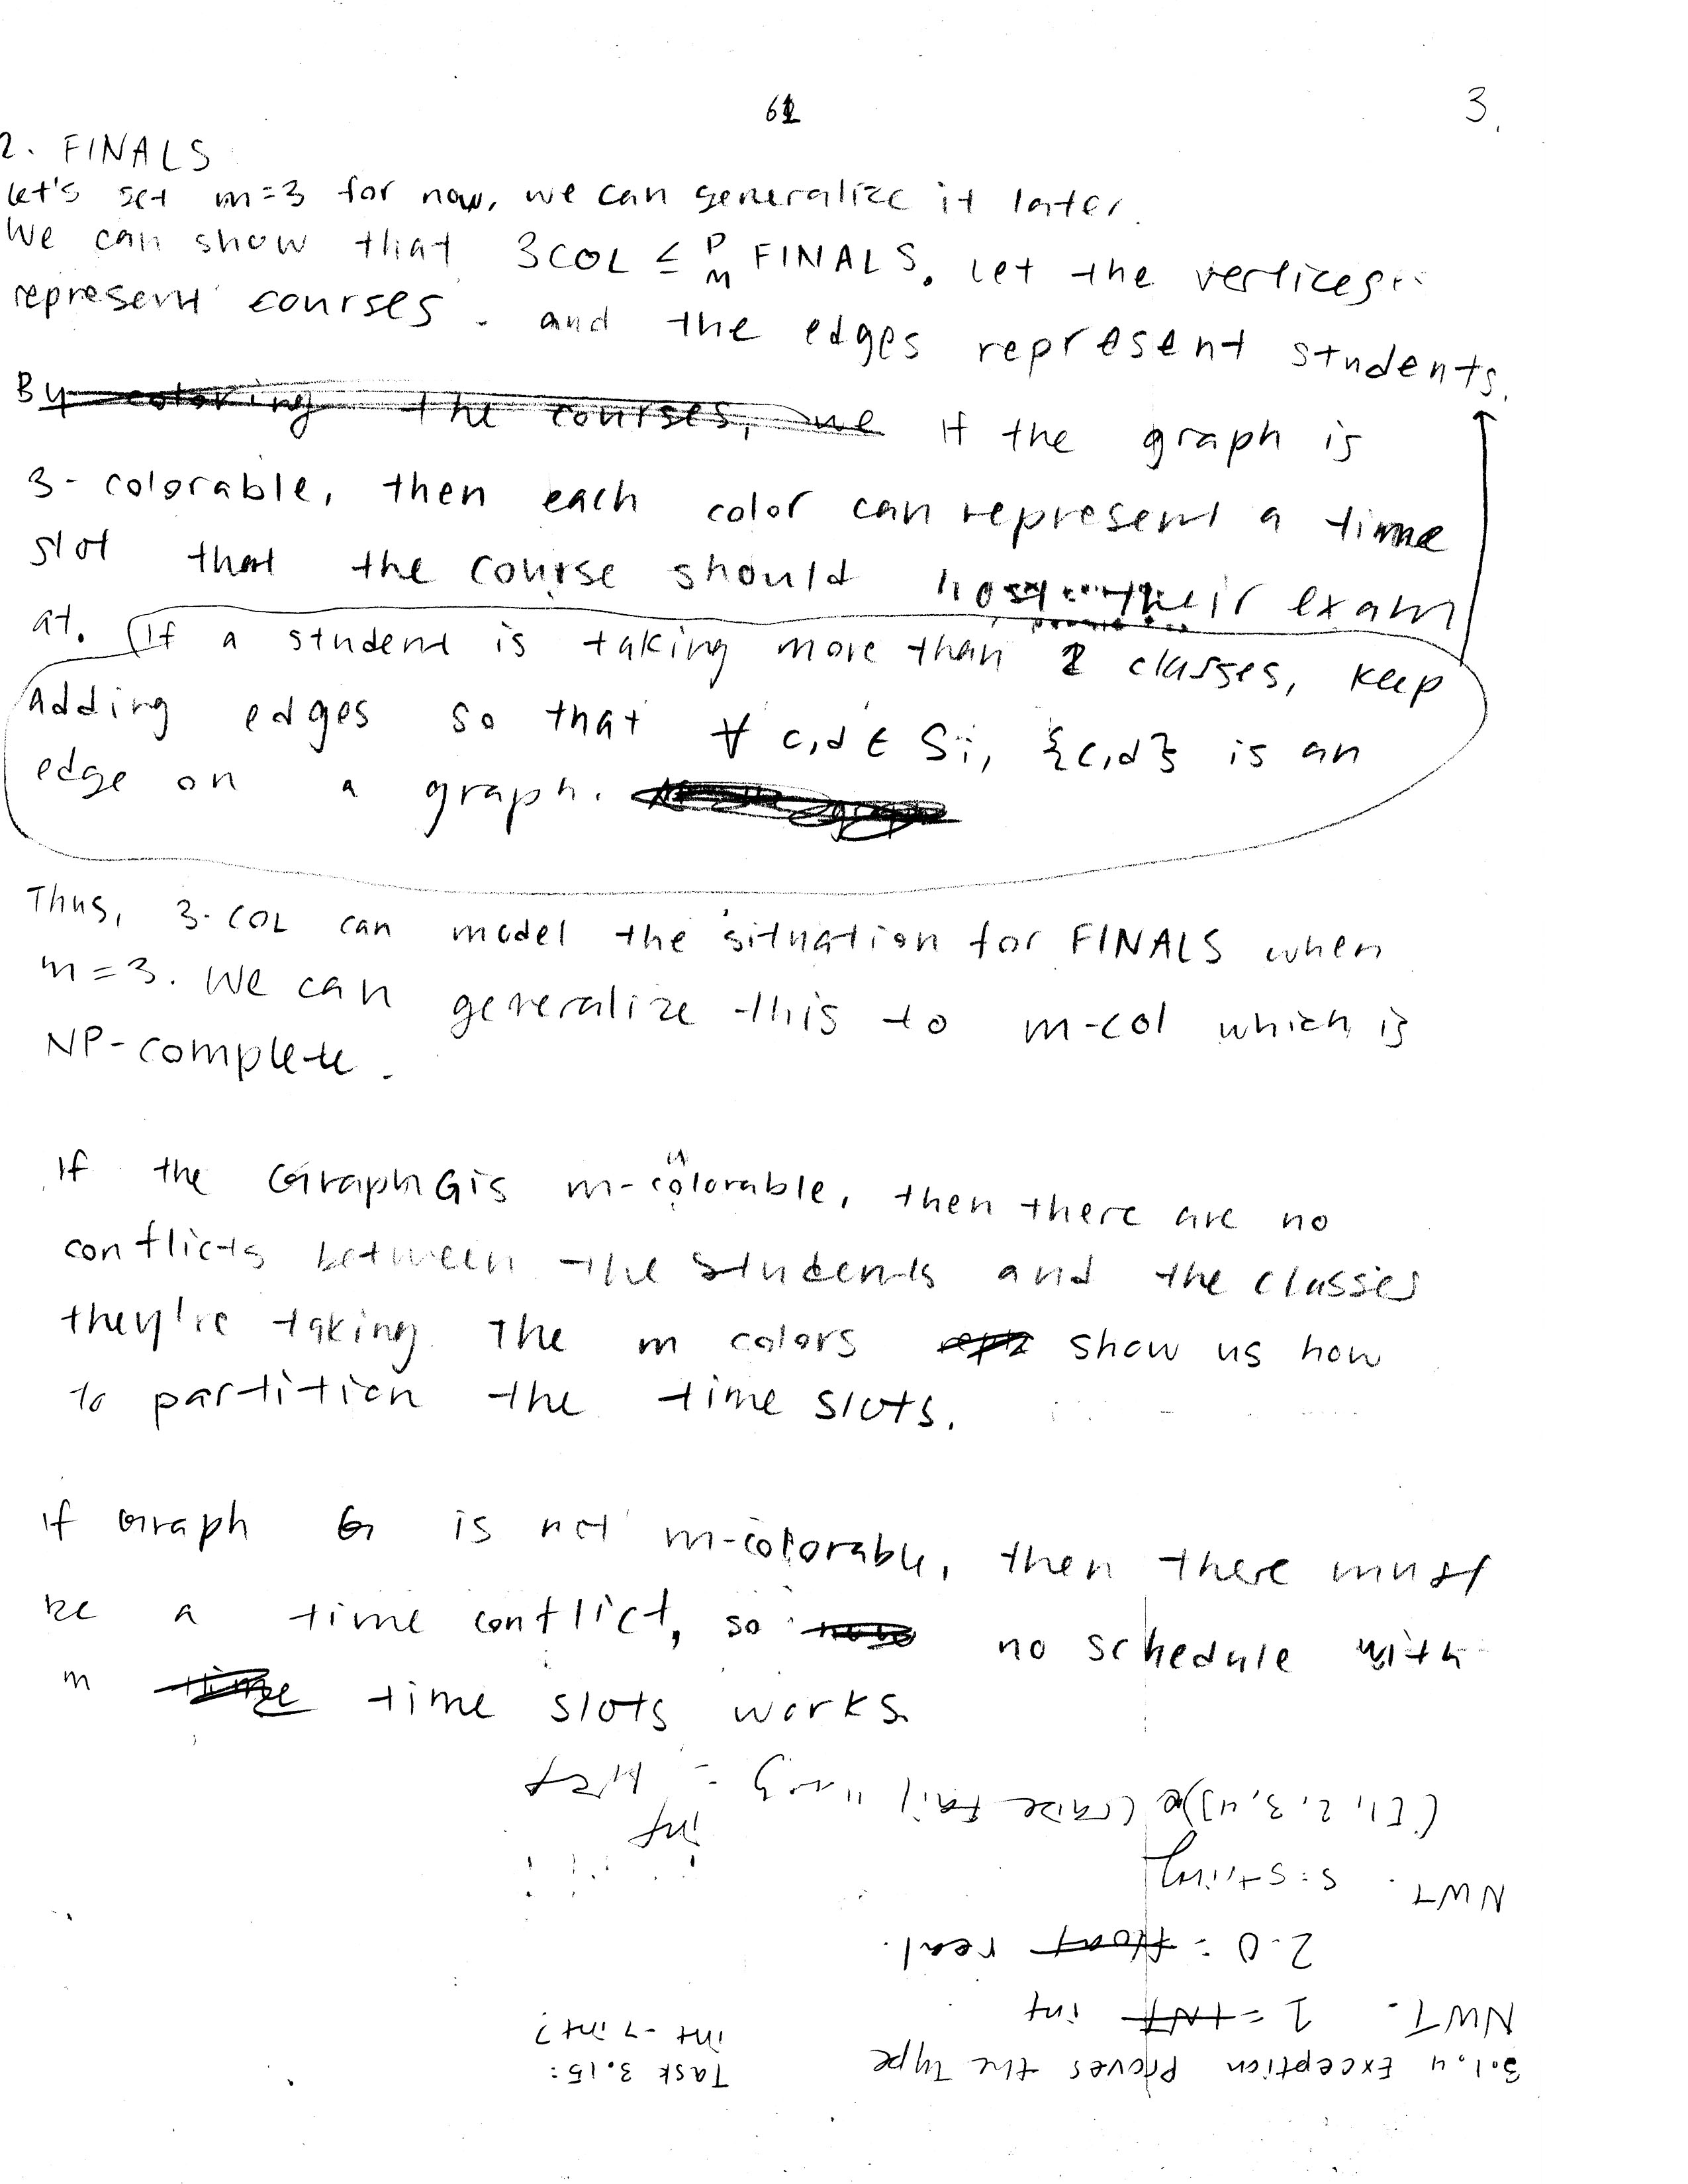 61
3.
2. FINALS
Let's set m=3 for now, we can generalize it later.
We can show that 3COL ≤ᴾₘ FINALS. Let the vertices
represent courses. and the edges represent students.
By coloring the courses, we If the graph is
3-colorable, then each color can represent a time
slot that the course should host their exam
at. If a student is taking more than 2 classes, keep
adding edges so that ∀ c,d ∈ Si, {c,d} is an
edge on a graph.
Thus, 3-COL can model the situation for FINALS when
m=3. We can generalize this to m-col which is
NP-complete.
If the Graph G is m-colorable, then there are no
conflicts between the students and the classes
they're taking. The m colors show us how
to partition the time slots.
if Graph G is not m-colorable, then there must
be a time conflict, so no schedule with
m time time slots works.
3.1.4 Exception Proves the Type
NWT. 1 = INT int
2.0 = float real.
NWT. s:string
([1,2,3,4]@(raise fail
int
Task 3.15:
int -> int?